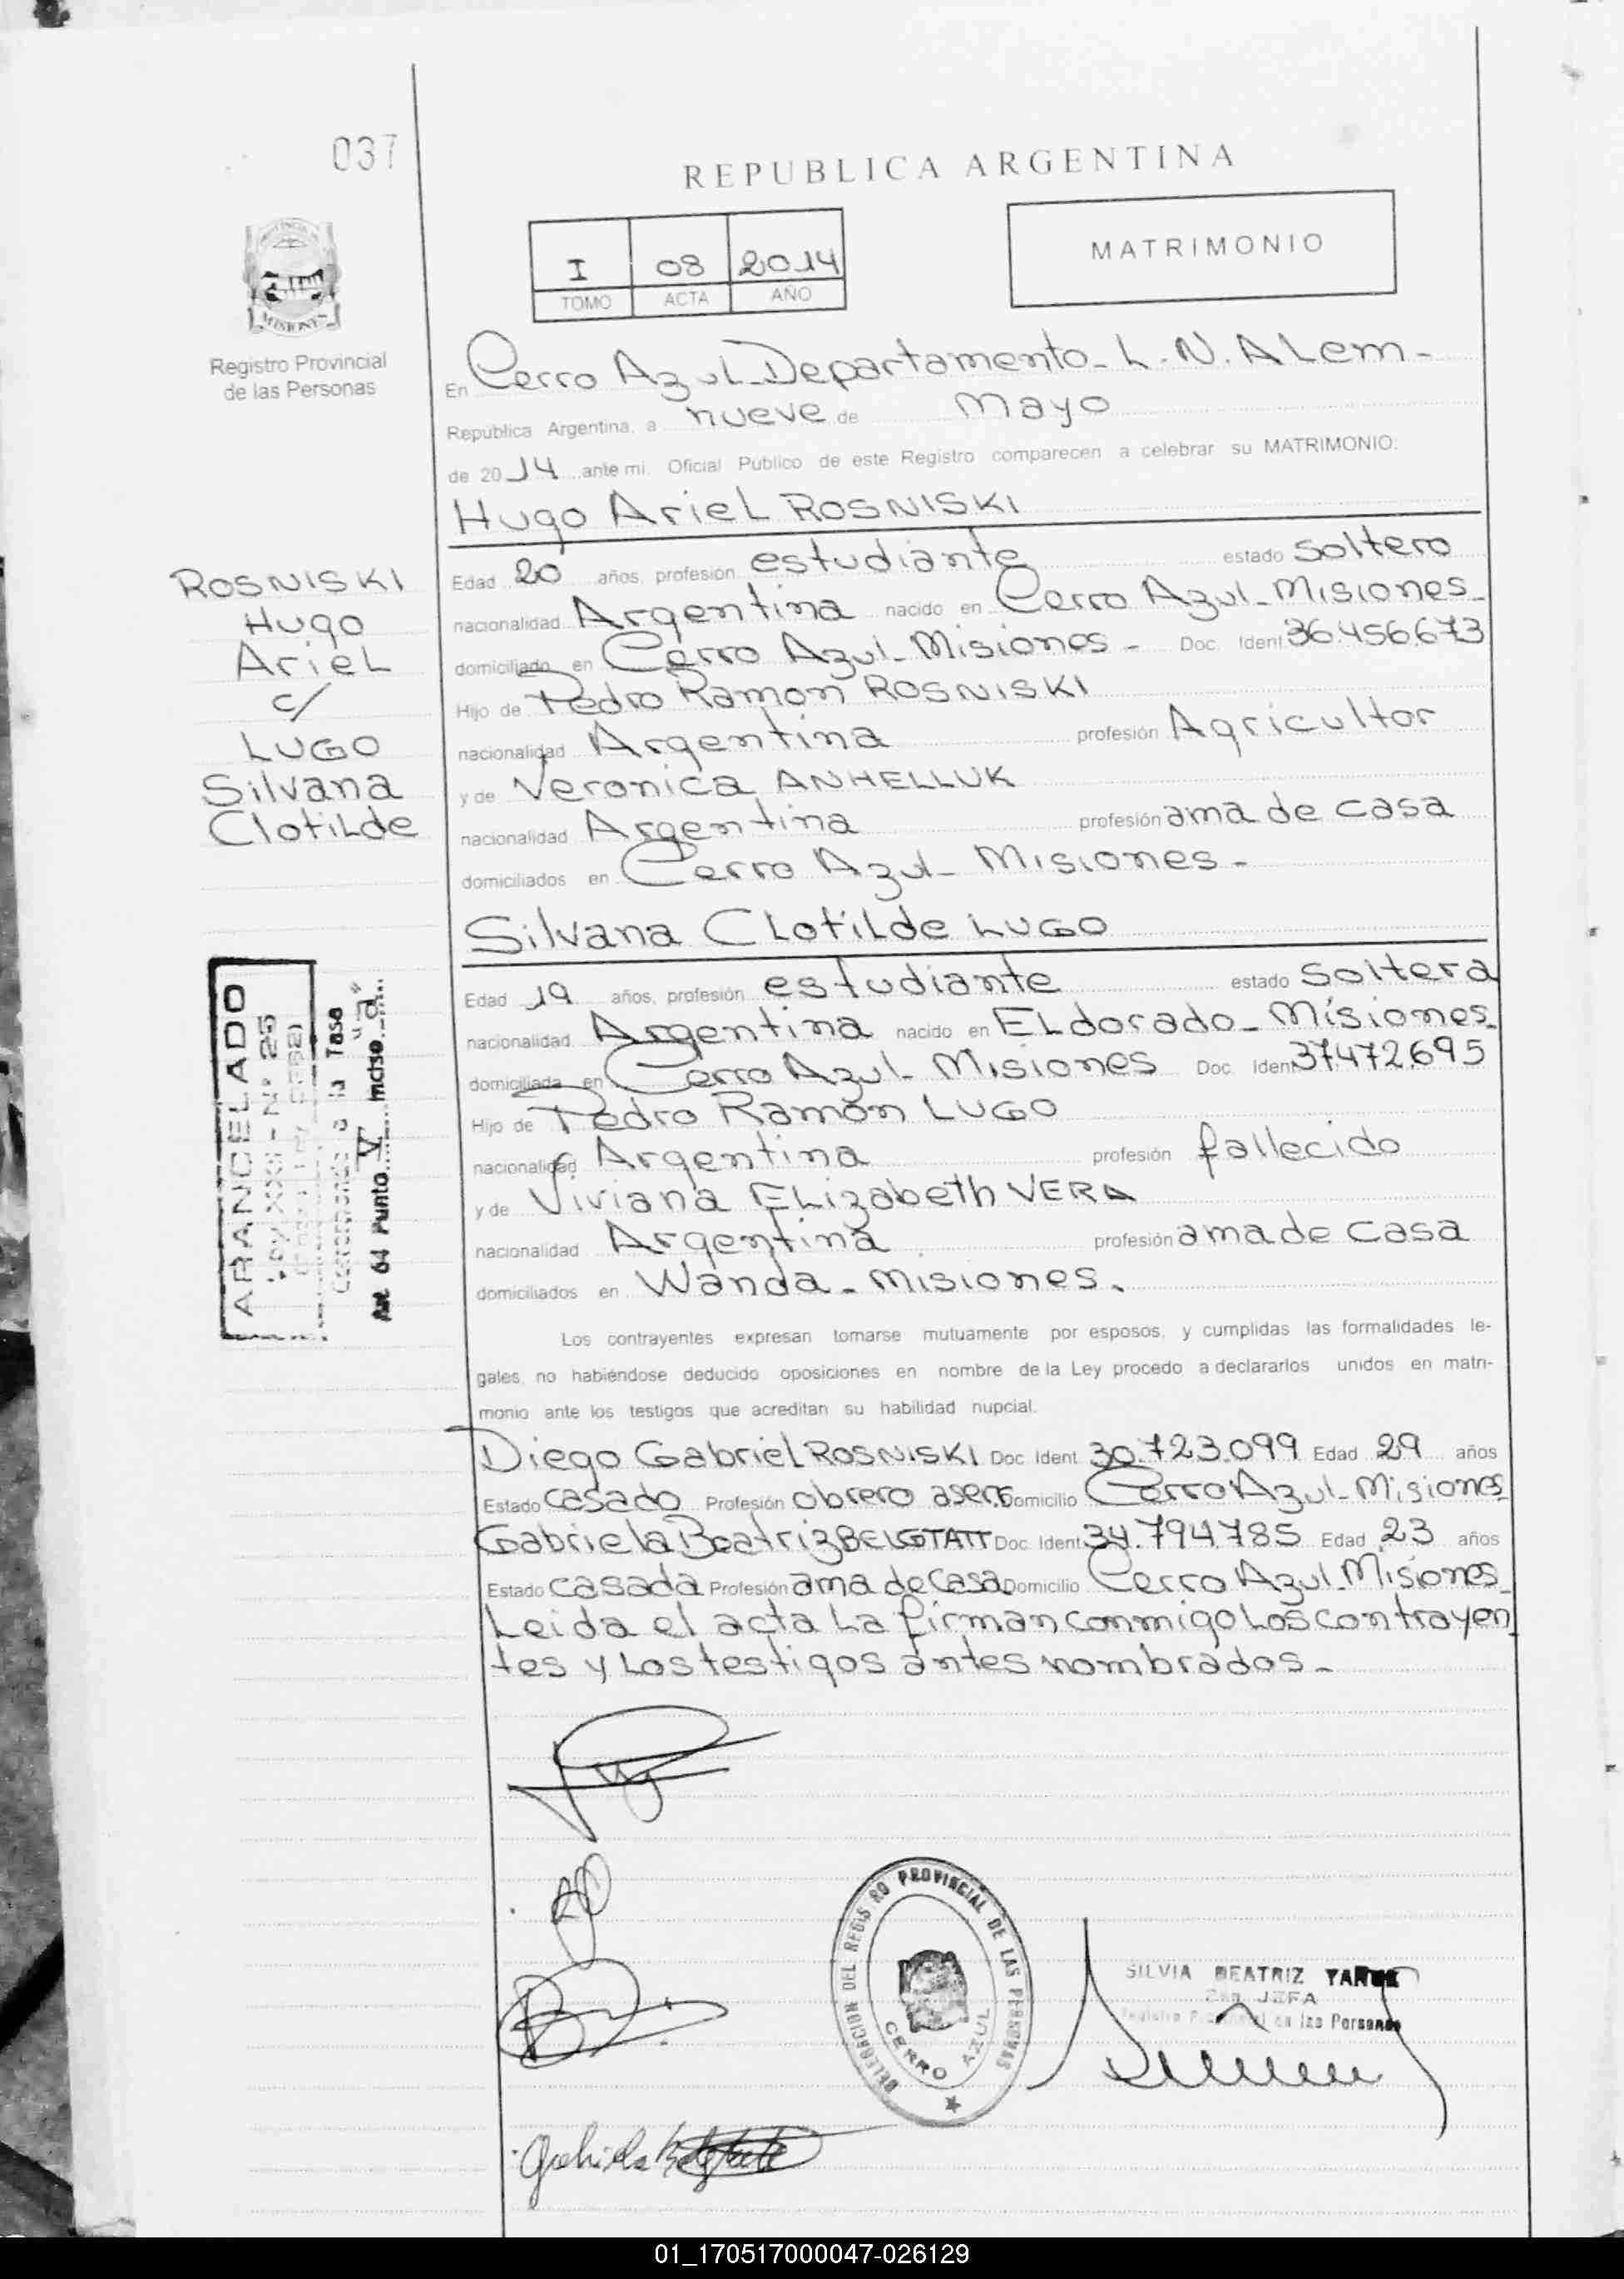 037
REPUBLICA ARGENTINA
I 08 2014
TOMO ACTA AÑO
MATRIMONIO
MISIONES
Registro Provincial
de las Personas
En Cerro Azul Departamento - L. N. ALem -
República Argentina, a nueve de Mayo
de 2014 ante mi, Oficial Público de este Registro comparecen a celebrar su MATRIMONIO:
Hugo ArieL ROSNISKI
Edad 20 años, profesión estudiante estado Soltero
nacionalidad Argentina nacido en Cerro Azul - Misiones -
domiciliado en Cerro Azul - Misiones - Doc. Ident. 36.456.673
Hijo de Pedro Ramon ROSNISKI
nacionalidad Argentina profesión Agricultor
y de Veronica ANHELLUK
nacionalidad Argentina profesión ama de casa
domiciliados en Cerro Azul - Misiones -
ROSNISKI
Hugo
ArieL
c/
LUGO
Silvana
ClotiLde
Silvana CLotiLde LUGO
Edad 19 años, profesión estudiante estado Soltera
nacionalidad Argentina nacido en ELdorado - Misiones -
domiciliada en Cerro Azul - Misiones Doc. Ident. 37.472.695
Hijo de Pedro Ramón LUGO
nacionalidad Argentina profesión fallecido
y de Viviana ELizabeth VERA
nacionalidad Argentina profesión ama de casa
domiciliados en Wanda - Misiones.
ARANCELADO
LEY XXII - Nº 25
Corresponde a la Tasa
Art. 64 Punto V inciso "a"
Los contrayentes expresan tomarse mutuamente por esposos, y cumplidas las formalidades le-
gales, no habiéndose deducido oposiciones en nombre de la Ley procedo a declararlos unidos en matri-
monio ante los testigos que acreditan su habilidad nupcial.
Diego GabrieL ROSNISKI Doc. Ident. 30.723.099 Edad 29 años
Estado casado Profesión obrero aserr. Domicilio Cerro Azul - Misiones
Gabriela Beatriz Doc. Ident. 34.794.785 Edad 23 años
Estado casada Profesión ama de casa Domicilio Cerro Azul - Misiones -
Leida el acta La firman conmigo Los contrayen
tes y Los testigos antes nombrados -
DELEGACION DEL REGISTRO PROVINCIAL DE LAS PERSONAS
CERRO AZUL
SILVIA BEATRIZ
JEFA
de las Personas
Gabriela
01_170517000047-026129